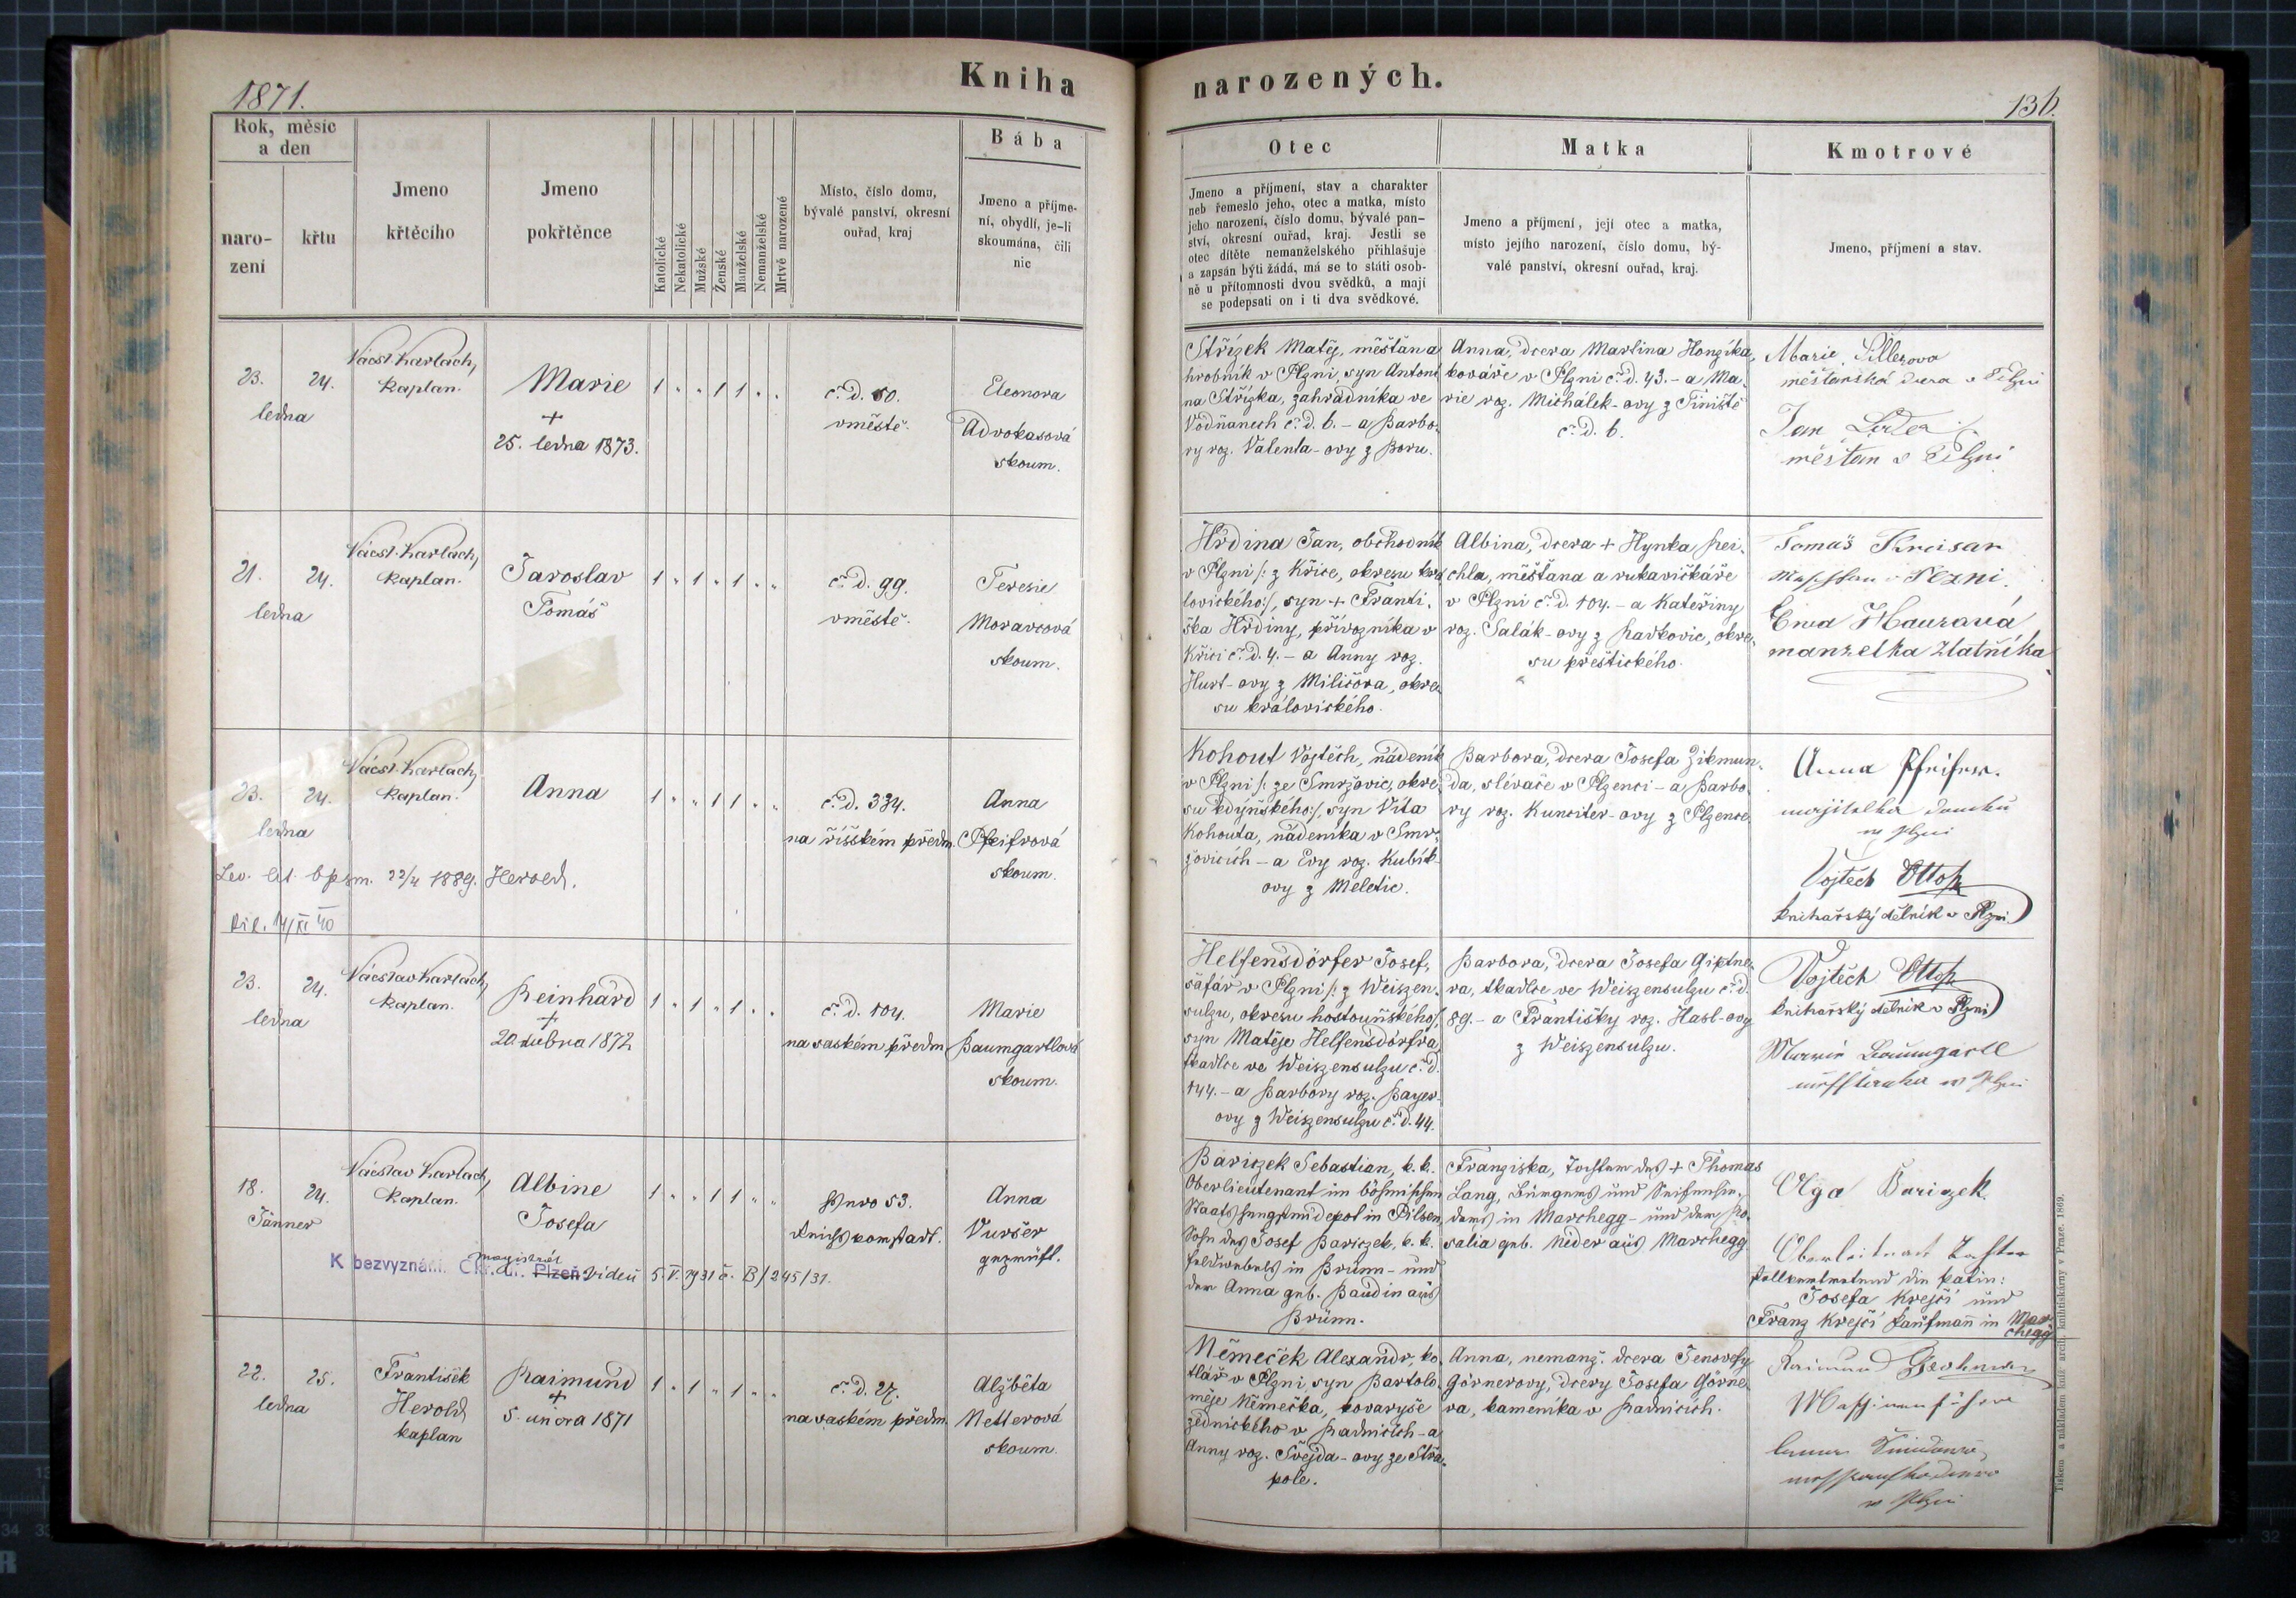 1871.
Kniha narozených.
136.
Rok, měsíc
a den
naro-
zení
křtu
Jmeno
křtěcího
Jmeno
pokřtěnce
Katolické
Nekatolické
Mužské
Ženské
Manželské
Nemanželské
Mrtvě narozené
Místo, číslo domu,
bývalé panství, okresní
ouřad, kraj
Bába
Jmeno a příjme-
ní, obydlí, je-li
skoumána, čili
nic
Otec
Jmeno a příjmení, stav a charakter
neb řemeslo jeho, otec a matka, místo
jeho narození, číslo domu, bývalé pan-
ství, okresní ouřad, kraj. Jestli se
otec dítěte nemanželského přihlašuje
a zapsán býti žádá, má se to státi osob-
ně u přítomnosti dvou svědků, a mají
se podepsati on i ti dva svědkové.
Matka
Jmeno a příjmení, její otec a matka,
místo jejího narození, číslo domu, bý-
valé panství, okresní ouřad, kraj.
Kmotrové
Jmeno, příjmení a stav.
23. 24.
ledna
Václ. Karlach,
kaplan.
Marie
+
25. ledna 1873.
1 " " 1 1 " "
č. d. 50.
v městě.
Eleonora
Advokasová
skoum.
Střízek Matěj, měšťan a
hrobník v Plzni, syn Antoni
na Střízka, zahradníka ve
Vodňanech č. d. 6. – a Barbo-
ry roz. Valenta-ovy z Boru.
Anna, dcera Martina Honzíka,
kováře v Plzni č. d. 43. – a Ma-
rie roz. Michálek-ovy z Tiniště
č. d. 6.
Marie Pillerova
měšťanská dcera v Plzni
Jan
měšťan v Plzni
21. 24.
ledna
Václ. Karlach,
kaplan.
Jaroslav
Tomáš
1 " 1 " 1 " "
č. d. 99.
v městě.
Teresie
Moravcová
skoum.
Hrdina Jan, obchodník
v Plzni /: z Křice, okresu kra
lovického:/, syn + Franti-
ška Hrdiny, přívozníka v
Křici č. d. 4. – a Anny roz.
Hurt-ovy z Miličova, okre-
su královického.
Albina, dcera + Hynka Rei-
chla, měšťana a rukavičkáře
v Plzni č. d. 104. – a Kateřiny
roz. Salák-ovy z Radkovic, okre-
su přeštického.
Tomáš Kreisar
v Plzni.
Ewa Hauzavá
manzelka zlatníka
23. 24.
ledna
Václ. Karlach,
kaplan.
Anna
1 " " 1 1 " "
č. d. 334.
na říšském předm.
Anna
Pfeifrová
skoum.
22/4 1889. Herold.
14/XI 40
Kohout Vojtěch, nádeník
v Plzni /: ze Smržovic, okre-
su kdyňského:/, syn Víta
Kohouta, nádeníka v Smr-
žovicích – a Evy roz. Kubík-
ovy z Meletic.
Barbora, dcera Josefa Zikmun-
da, slévače v Plzenci – a Barbo-
ry roz. Kunciter-ovy z Plzence.
Anna Pfeifrow.
majitelka domku
w Plzni
Vojtěch Ottop
knihařský dělník v Plzni
23. 24.
ledna
Václav Karlach,
kaplan.
Reinhard
+
20 dubna 1872
1 " 1 " 1 " "
č. d. 104.
na saském předm.
Marie
Baumgartlová
skoum.
Helfensdörfer Josef,
šafář v Plzni /: z Weiszen-
sulzu, okresu hostouňského:/,
syn Matěje Helfensdörfra,
tkadlce ve Weiszensulzu č. d.
144. – a Barbory roz. Bayer-
ovy z Weiszensulzu č. d. 44.
Barbora, dcera Josefa Giptne-
ra, tkadlce ve Weiszensulzu č. d.
89. – a Františky roz. Hasl-ovy
z Weiszensulzu.
Vojtěch Ottop
knihařský dělník v Plzni
Marie Baumgartl
w Plzni
18. 24.
Jänner
Václav Karlach,
kaplan.
Albine
Josefa
1 " " 1 1 " "
Hsnro 53.
Reichsvorstadt.
Anna
Vurser
geprüft.
K bezvyznání. Okr. úř. Plzeň magistrát Vídeň 5. V. 1931 č. B/245/31.
Bariczek Sebastian, k. k.
Oberlieutenant im böhmischen
Staatshengstendepot in Pilsen,
Sohn des Josef Bariczek, k. k.
Feldwebels in Brünn – und
der Anna geb. Baudin aus
Brünn.
Franziska, Tochter des + Thomas
Lang, Bürgers und Seifensie-
ders in Marchegg – und der Ro-
salia geb. Neder aus Marchegg.
Olga Bariczek
Oberleitnant Tochter
stellvertretend die Patin:
Josefa Krejči und
Franz Krejči Kaufmann in Mar-
chegg
22. 25.
ledna
František
Herold
kaplan
Raimund
+
5. února 1871
1 " 1 " 1 " "
č. d. 27.
na saském předm.
Alžběta
Mellerová
skoum.
Němeček Alexandr, ko-
tlář v Plzni syn Bartolo-
měje Němečka, tovaryše
zednického v Radnicích – a
Anny roz. Švejda-ovy ze Stra-
pole.
Anna, nemanž. dcera Jenovefy
Görnerovy, dcery Josefa Görne-
ra, kameníka v Radnicích.
Raimund
w Plzni
Tiskem a nákladem kníž. arcib. knihtiskárny v Praze. 1869.